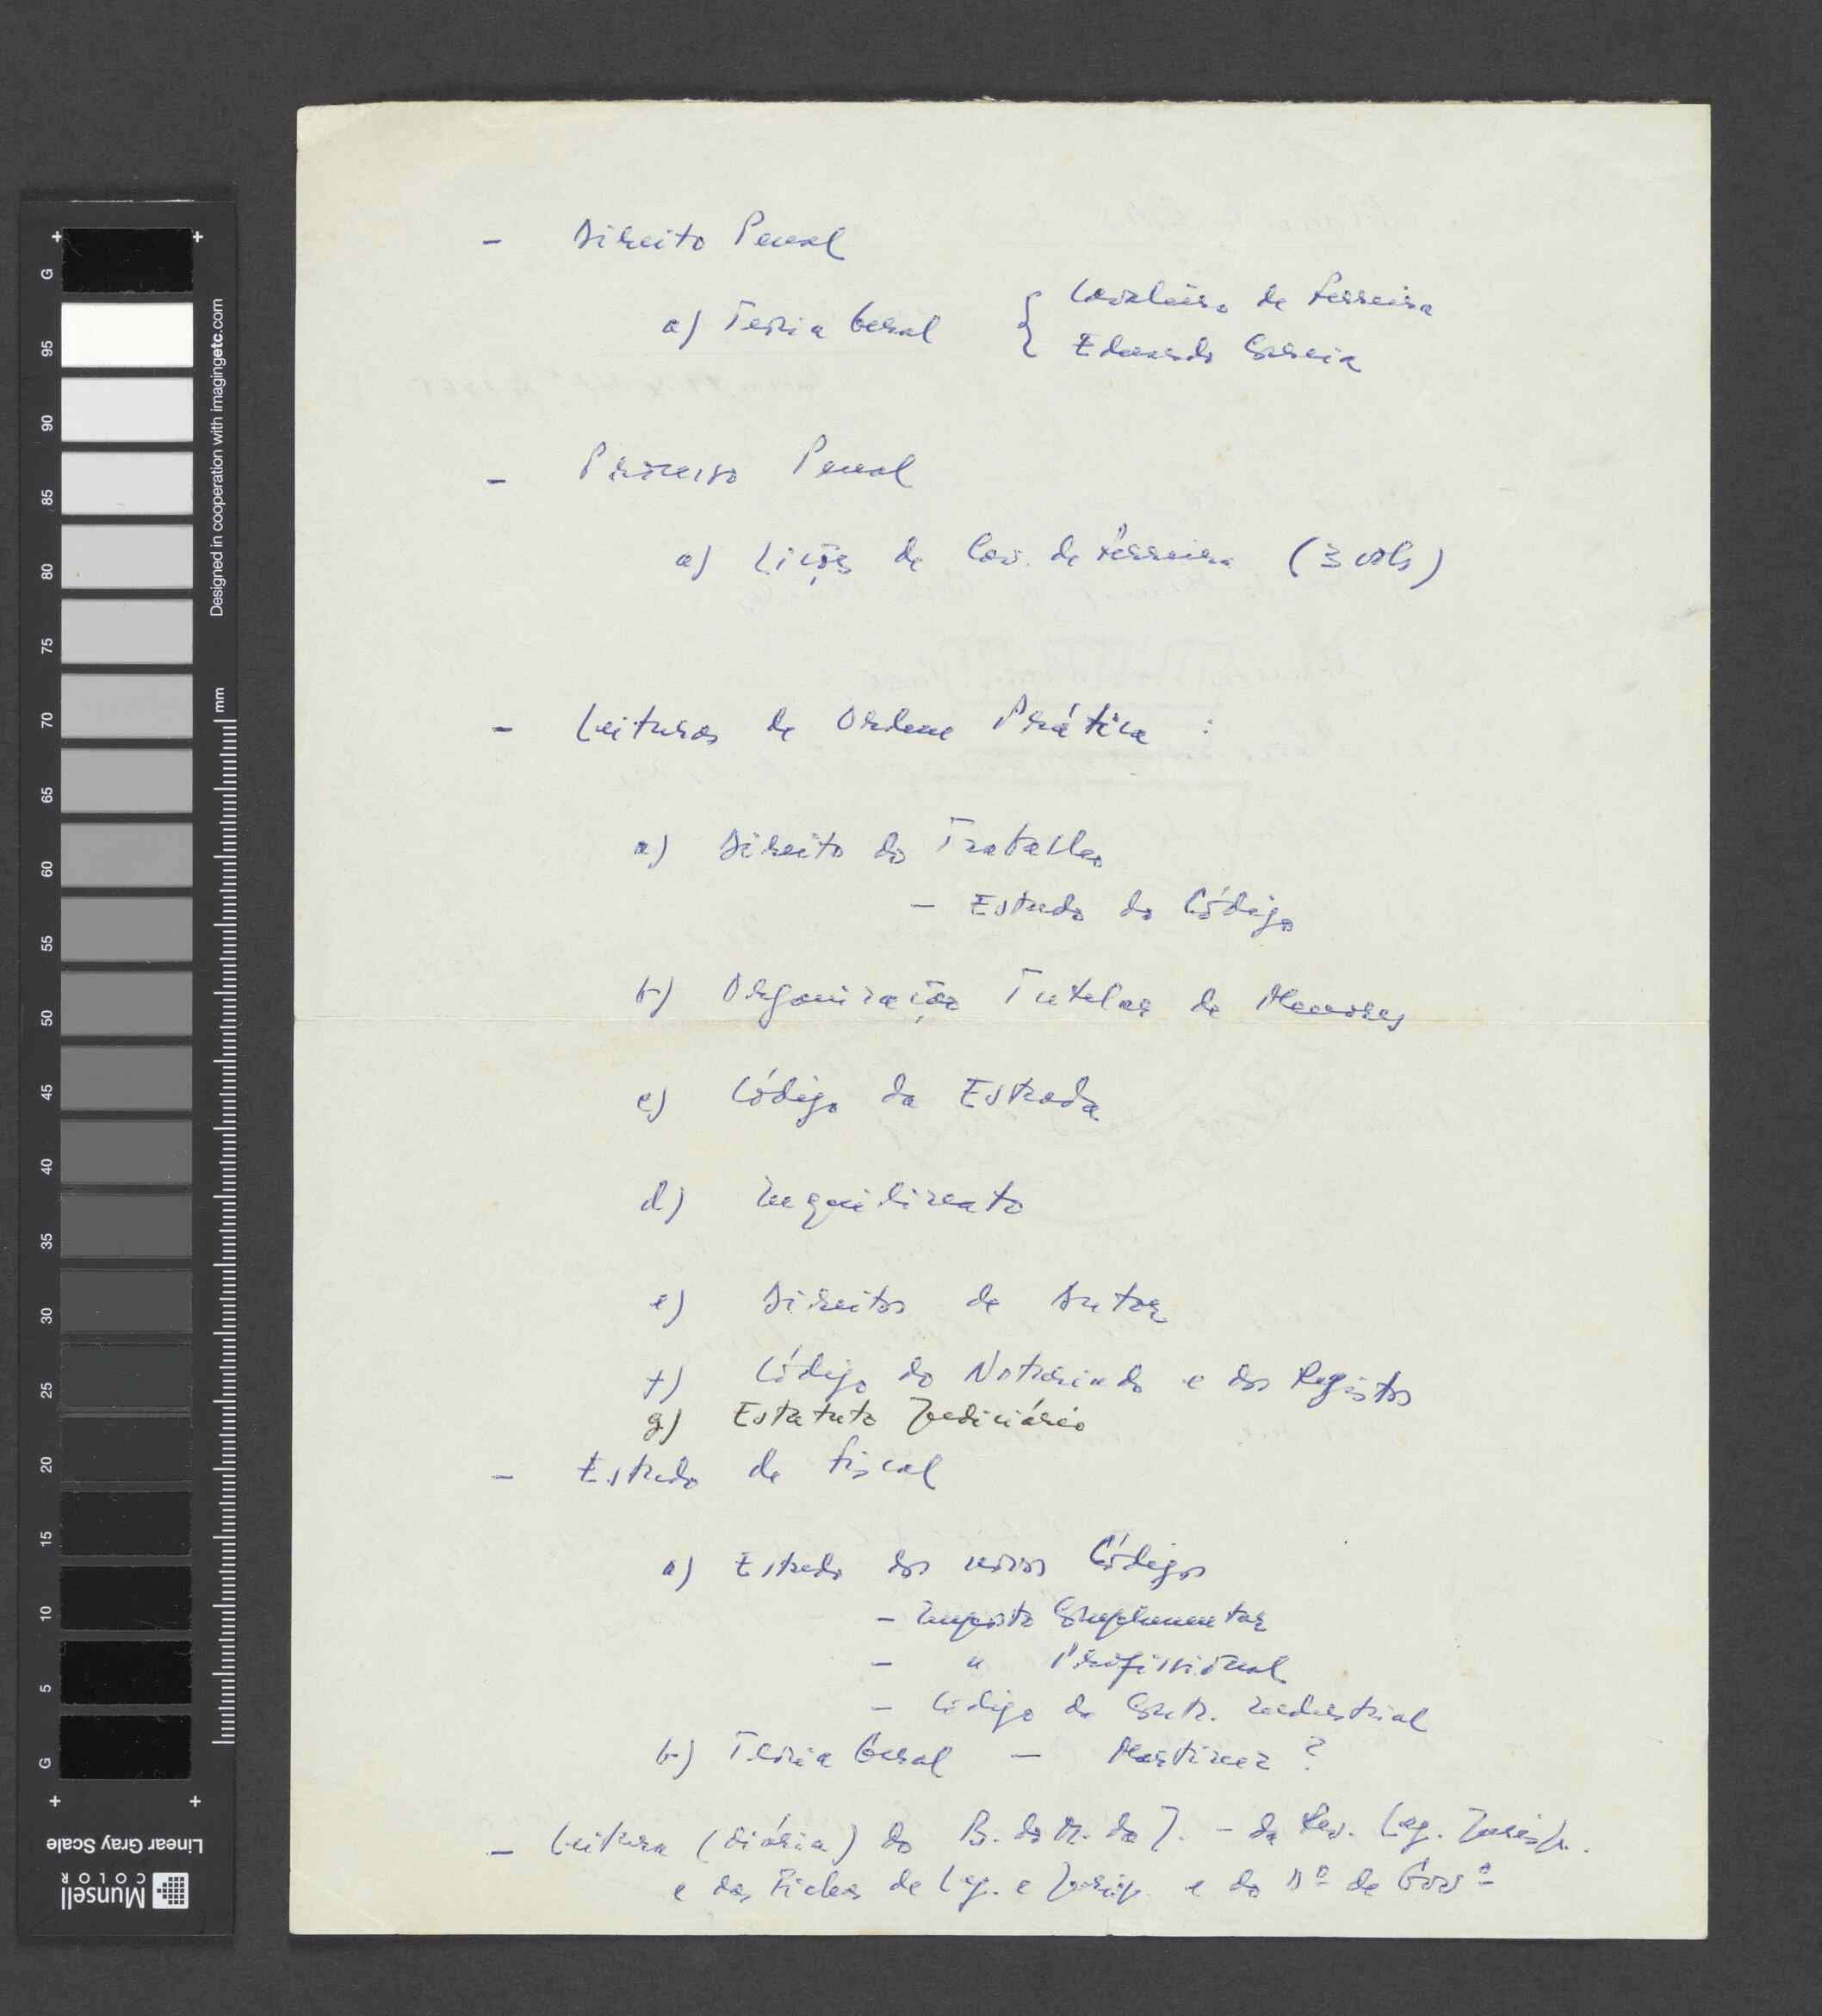 - Direito Penal
a) Teoria Geral { Cavaleiro de Ferreira
Eduardo Correia
- Processo Penal
a) Lições de Cav. de Ferreira (3 vols)
- Leituras de Ordem Prática :
a) Direito do Trabalho
- Estudo do Código
b) Organização Tutelar de Menores
c) Código da Estrada
d) Inquilinato
e) Direitos de Autor
f) Código do Notariado e dos Registos
g) Estatuto Judiciário
- Estudo de Fiscal
a) Estudo dos novos Códigos
- Imposto Complementar
- " Profissional
- Código da Contr. Industrial
b) Teoria Geral - Martinez ?
- Leitura (diária) do B. do M. da J. - da Rev. Leg. Jurisp.
e das Fichas de Leg. e Jurisp. e do Dº de Govº
G
95
90
85
80
75
70
65
60
55
50
45
40
35
30
25
20
15
10
5
G
Designed in cooperation with imagingetc.com
mm
Linear Gray Scale
Munsell
COLOR